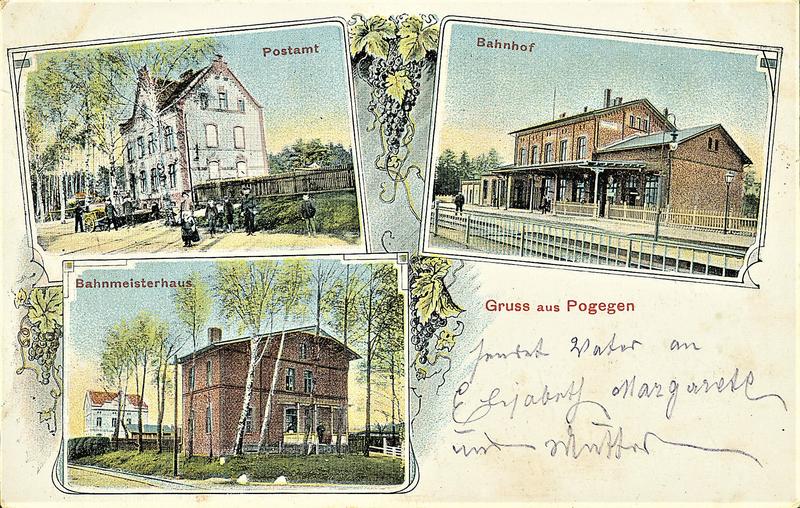 Postamt
Bahnhof
Bahnmeisterhaus
Gruss aus Pogegen
sendet Vater an
Elisabeth Margarete
und Mutter